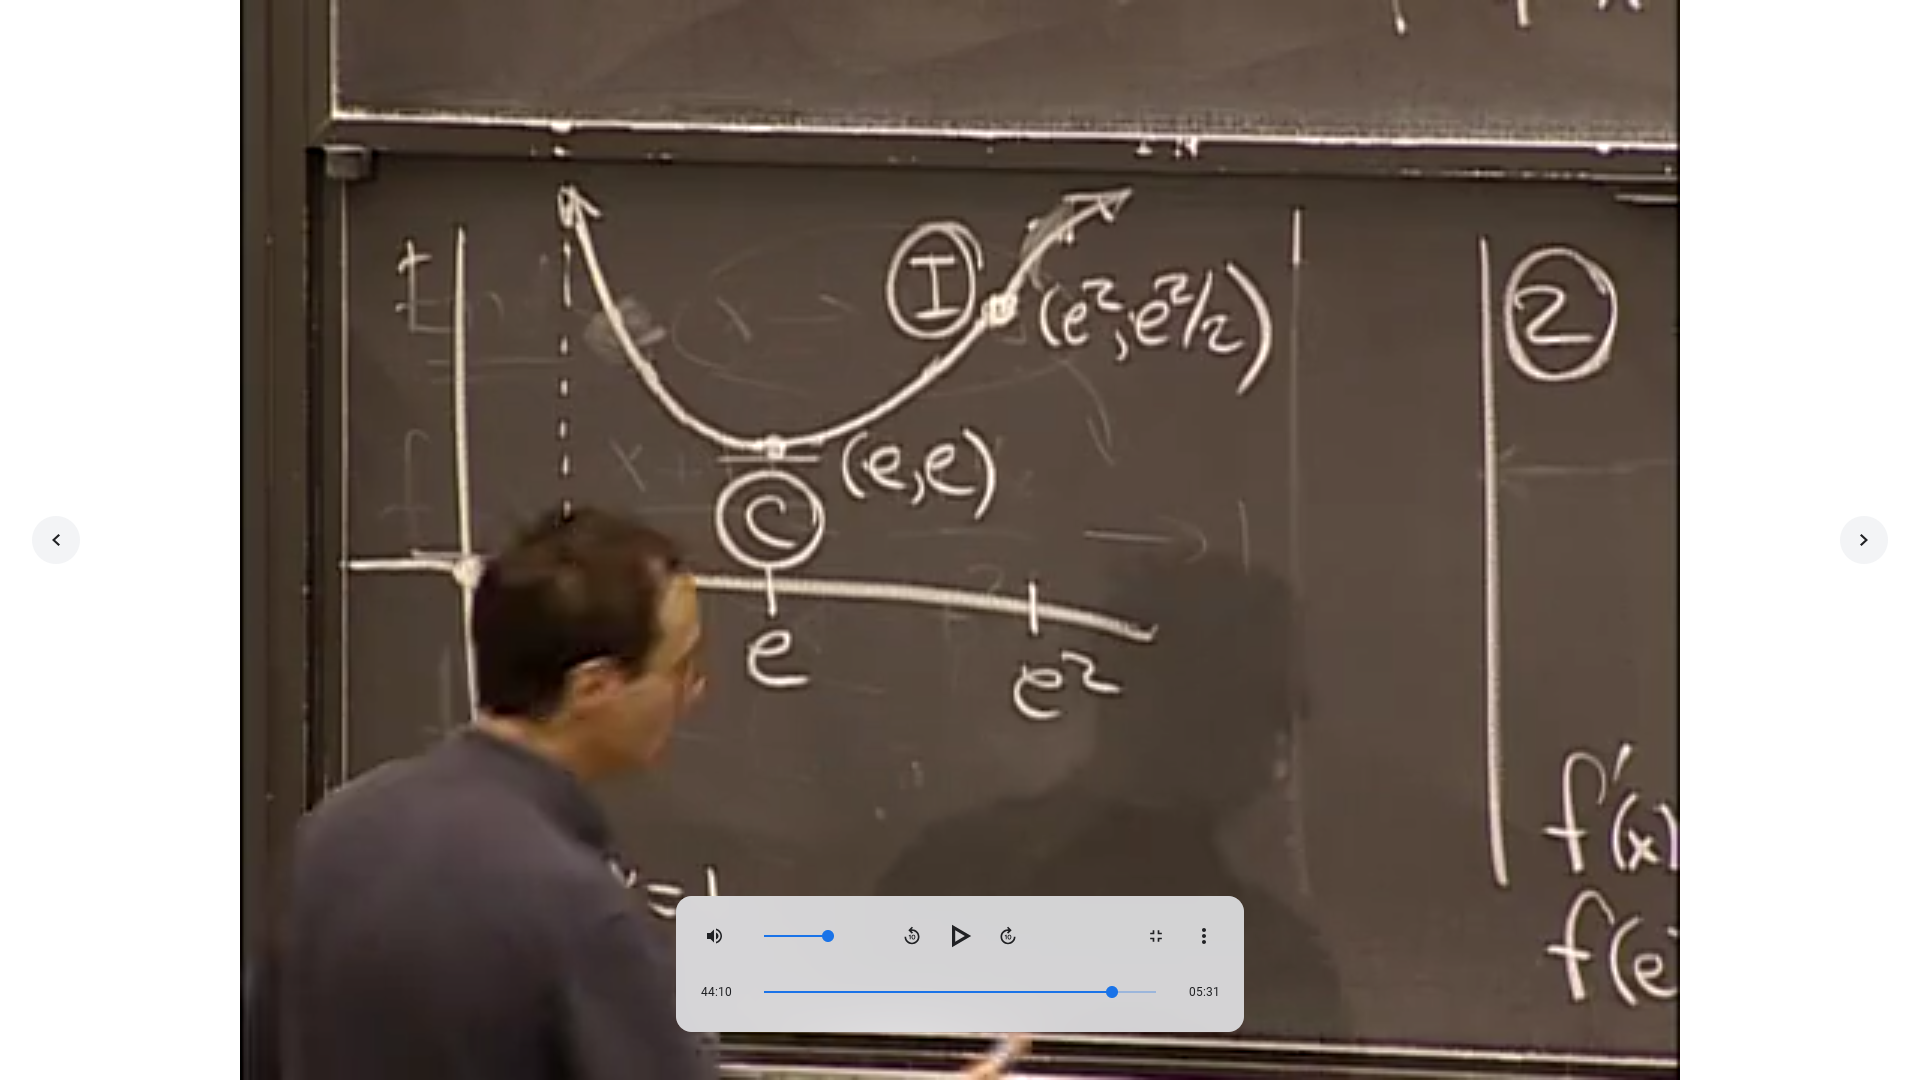 I
(e², e²/2)
2
(e,e)
C
e
e²
f'(x)
x=1
f(e
44:10
05:31